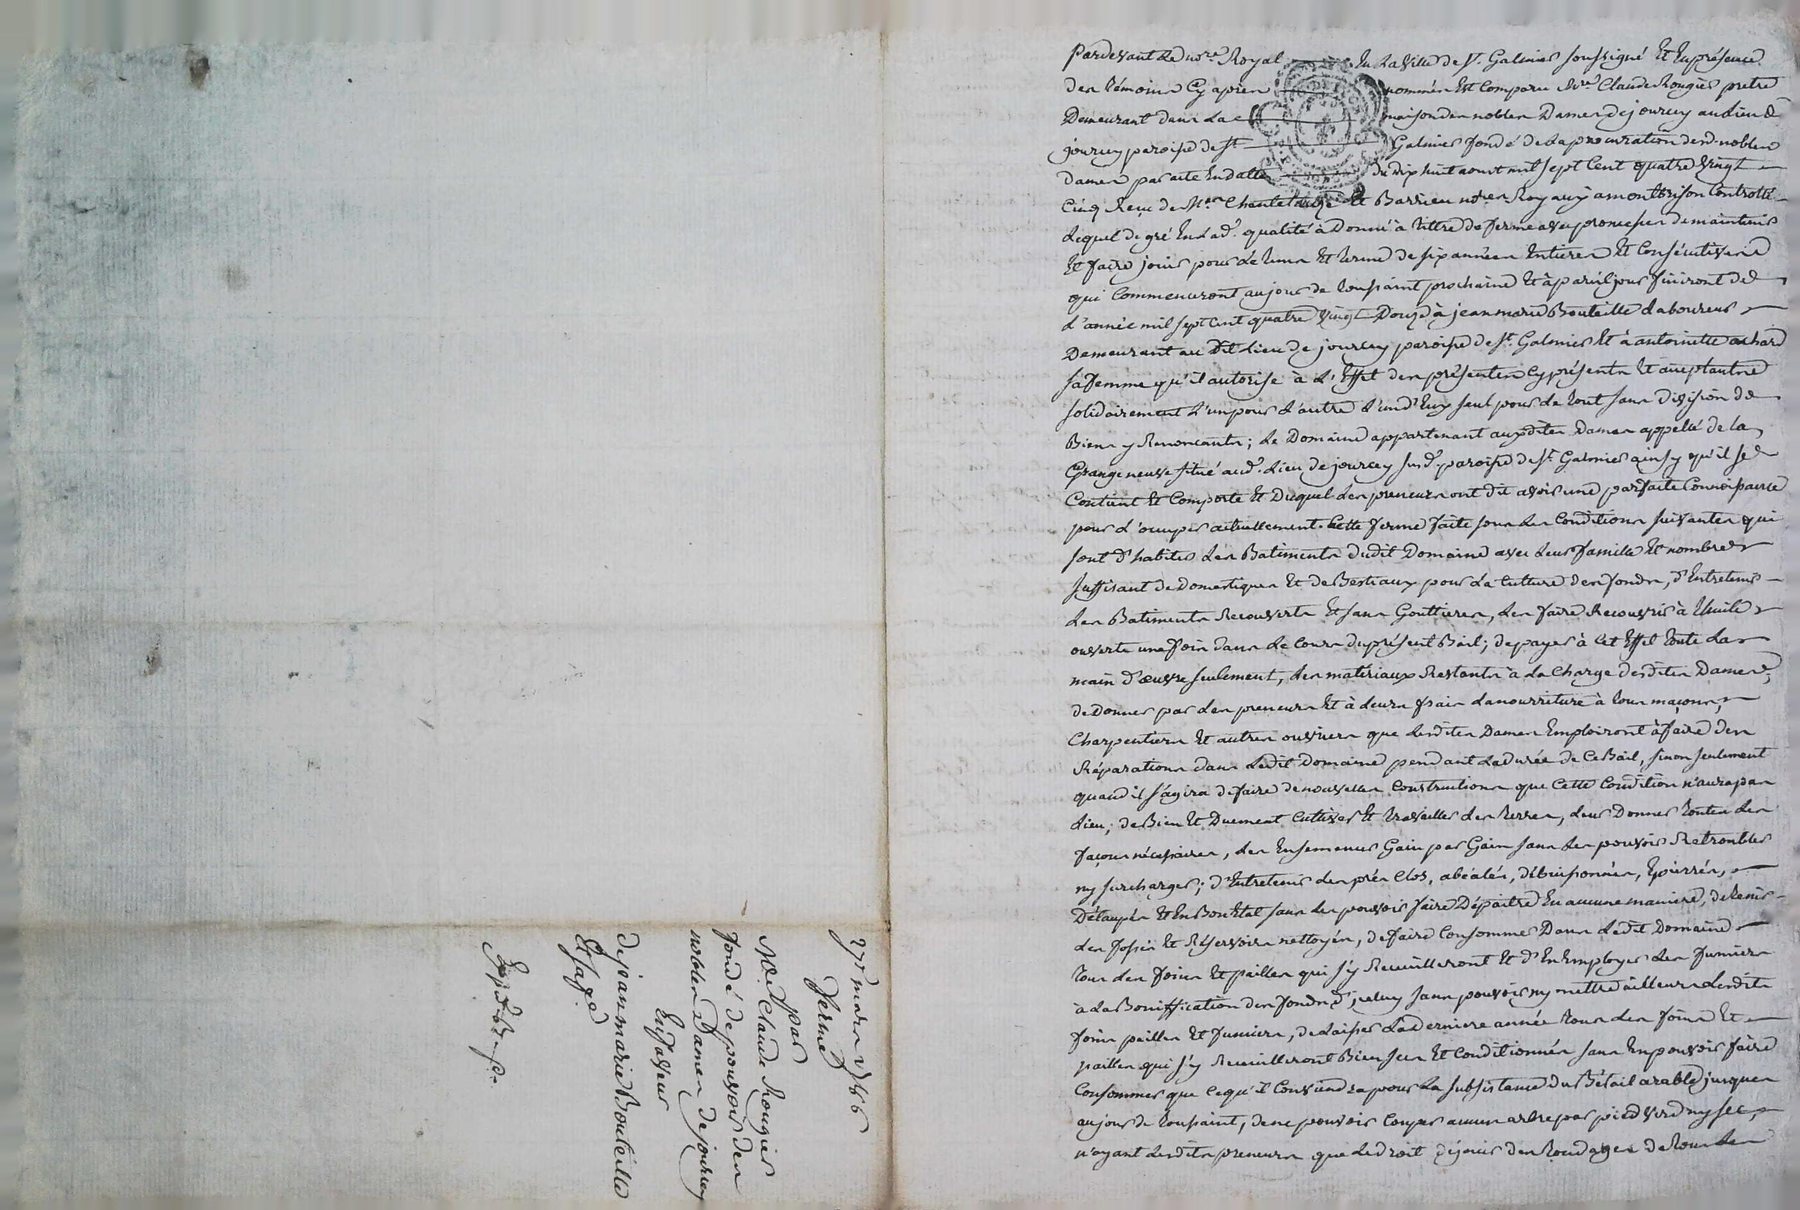 27 mars 1786
Ferme
par
Mre Claude Rougier
fondé de pouvoir des
nobles Dames de jourcey
En faveur
de jean marie Bouteille
Et sa fe
Pardevant Le nore Royal En La ville de St. Galmier soussigné Et En présence
des témoins Cy aprèes nommés Est Comparu Mre Claude Rougier pretre
Demeurant dans La maison des nobles Dames de jourcey au Lieu de
jourcey paroisse de St Galmier fondé de La procuration desd. nobles
dames par acte En datte du dix huit aoust mil sept Cent quatre vingt
Cinq Reçu de Mes Chantelauze Et Barrieu nores Royaux à montbrison Controllé
Lequel de gré En Lad. qualité à Donné à titre de ferme avec promesse de maintenir
Et faire jouir pour Le tems Et terme de six années Entieres Et Consécutives
qui Commenceront au jour de toussaint prochaine Et à pareil jour finiront de
L'année mil sept Cent quatre vingt Douze à jean marie Bouteille Laboureur
Demeurant au Dit Lieu de jourcey paroisse de St. Galmier Et à antoinette achard
sa femme qu'il autorise à L'Effet des présentes Cy présents Et acceptants
solidairement L'un pour L'autre L'un d'Eux seul pour Le tout sans Division de
Biens y Renonçants; Le Domaine appartenant auxdites Dames appellé de La
Grange neuve situé aud. Lieu de jourcey susd. paroisse de St Galmier ainsy qu'il se
Contient Et Comporte Et Duquel Les preneurs ont dit avoir une parfaite Connoissance
pour L'ocuper actuellement. Cette ferme faite sous Les Conditions suivantes qui
sont D'habiter Les Batiments dudit Domaine avec Leur famille Et nombre
suffisant de Domestiques Et de Bestiaux pour La Culture des fonds, d'Entretenir
Les Batiments Recouverts Et sans Gouttieres, Les faire Recouvrir à thuile
ouverte une fois dans Le Cours du présent Bail; de payer à Cet Effet toute La
main D'œuvre seulement, Les matériaux Restants à La Charge desdites Dames;
de Donner par Les preneurs Et à Leurs frais La nourriture à tous maçons,
Charpentiers Et autres ouvriers que Lesdites Dames Emploiront à faire des
Réparations dans Ledit Domaine pendant La durée de Ce Bail, sinon seulement
quand il s'agira de faire de nouvelles Constructions que Cette Condition n'aura pas
Lieu; de Bien Et Duement Cultiver Et travailler Les terres, Leur Donner toutes Les
façons nécessaires, Les Ensemencer Gain par Gain sans Les pouvoir Retroubler
ny surcharger; d'Entretenir Les prés Clos, abéalés, débuissonnés, Epierrés,
Détaupés Et En Bon Etat sans Les pouvoir faire Dépaitre En aucune maniere, de tenir
Les fossés Et Réservoirs nettoyés, de faire Consommer Dans Ledit Domaine
tous Les foins Et pailles qui s'y Recueilleront Et d'En Employer Les fumiers
à La Bonification des fonds d'icelui sans pouvoir ny mettre ailleurs Lesdits
foins pailles Et fumiers, de Laisser La Derniere année tous Les foins Et
pailles qui s'y Recueilleront Bien secs Et Conditionnés sans En pouvoir faire
Consommer que Ce qu'il Conviendra pour La subsistance du Bétail arable jusques
au jour de toussaint, de ne pouvoir Couper aucun arbre par pied verd ny sec,
n'ayant Lesdits preneurs que Le droit de jouir des tondages de tous Les